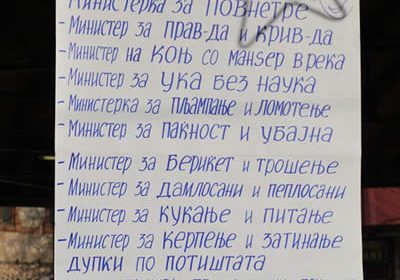 Министерка за повнетре
- Министер за прав-да и крив-да
- Министер на коњ со манѕер в река
- Министер за ука без наука
- Министерка за пљампање и ломотење
- Министер за паќност и убајна
- Министер за берикет и трошење
- Министер за дамлосани и пеплосани
- Министер за кукање и питање
- Министер за керпење и затинање
дупки по потиштата